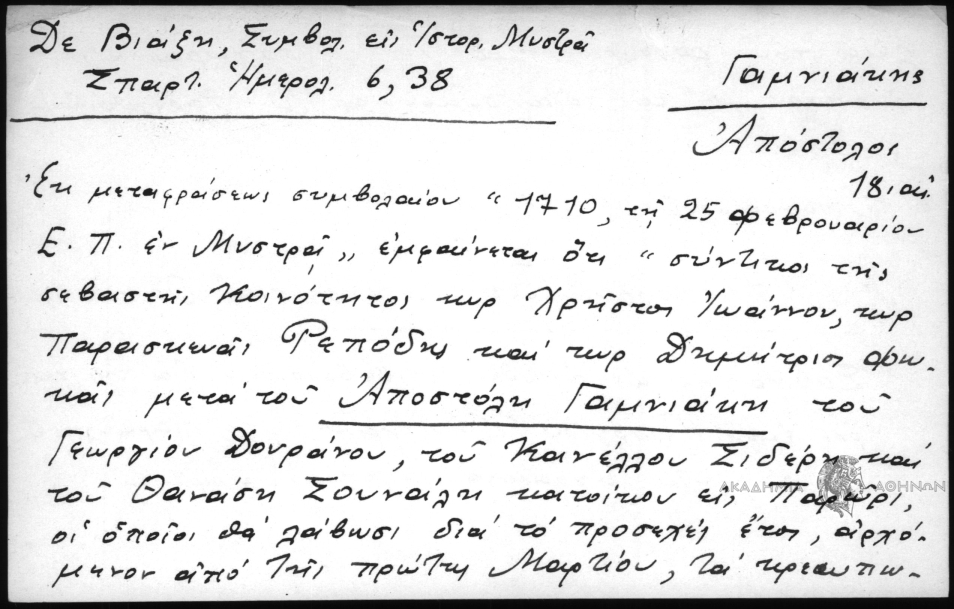 Δε Βιάζη, Συμβολ. εις Ιστορ. Μυστρά
Σπαρτ. Ημερολ. 6, 38
Γαμνιάκης
Απόστολος
18 αι.
Εκ μεταφράσεως συμβολαίου "1710, τη 25 Φεβρουαρίου
Ε. Π. εν Μυστρά,, εμφαίνεται ότι "σύντικος της
σεβαστής Κοινότητος κυρ Χρήστος Ιωάννου, κυρ
Παρασκευάς Ρεπόδης και κυρ Δημήτριος Φω-
κάς μετά του Αποστόλη Γαμνιάκη του
Γεωργίου Δουράνου, του Κανέλλου Σιδέρη και
του Θανάση Σουνάλη κατοίκου εις Παρώρι,
οι οποίοι θα λάβωσι διά το προσεχές έτος, αρχό-
μενον από της πρώτης Μαρτίου, τα κρεωπω-
ΑΚΑΔΗΜΙΑ ΑΘΗΝΩΝ